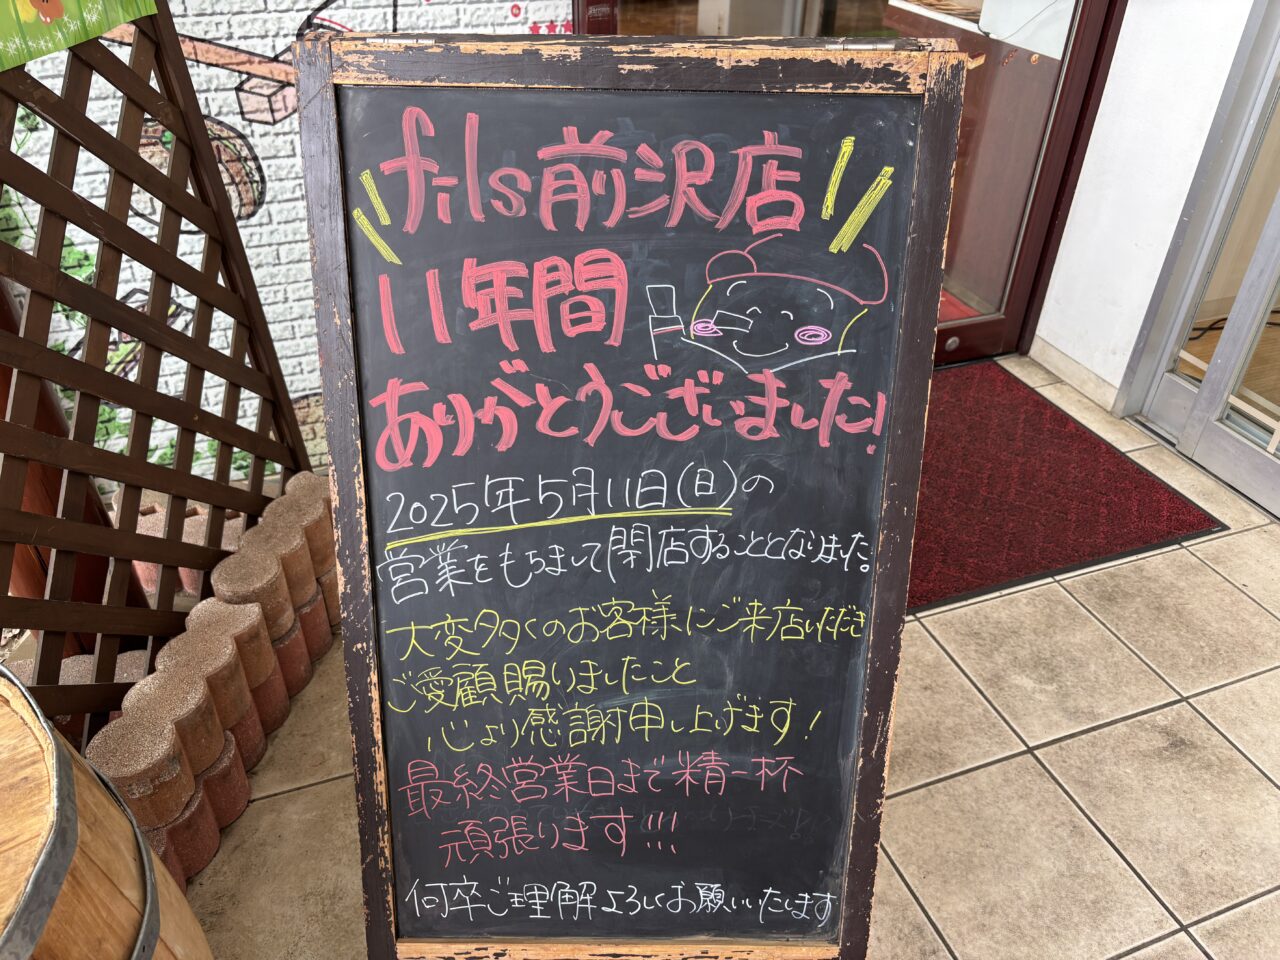 fils前沢店
11年間
ありがとうございました!
2025年5月11日(日)の
営業をもちまして閉店することとなりました。
大変多くのお客様にご来店いただき
ご愛顧賜りましたこと
心より感謝申し上げます!
最終営業日まで精一杯
頑張ります!!!
何卒ご理解よろしくお願いいたします